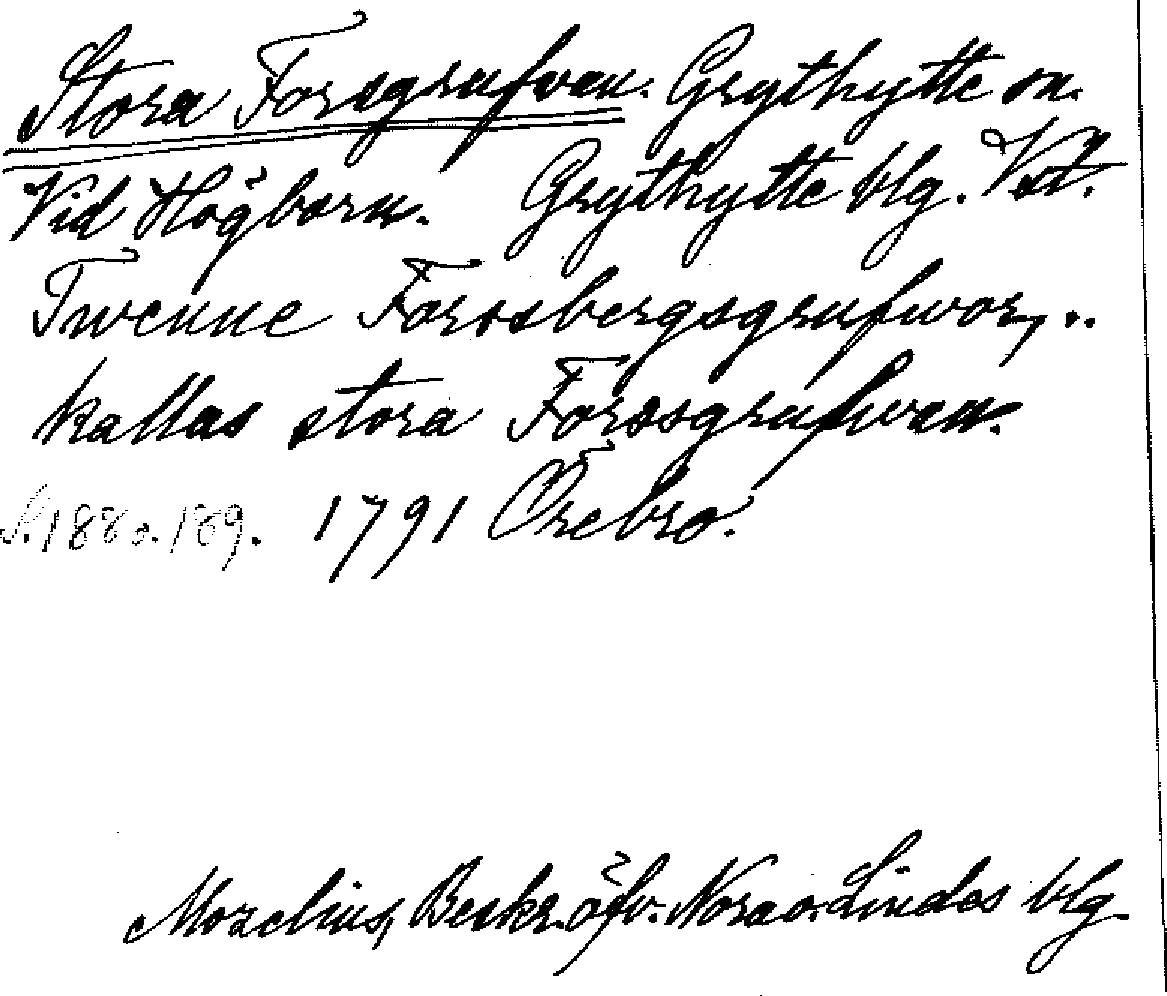 Stora Forsgrufvan. Grythytte sn.
Vid Högborn. Grythytte blg. Vst.
Twenne Forssbergsgrufwor, ..
kallas stora Forssgrufwan.
S. 188 o. 189. 1791 Örebro.
Morelius, Beskr. öfv. Nora o. Lindes blg.